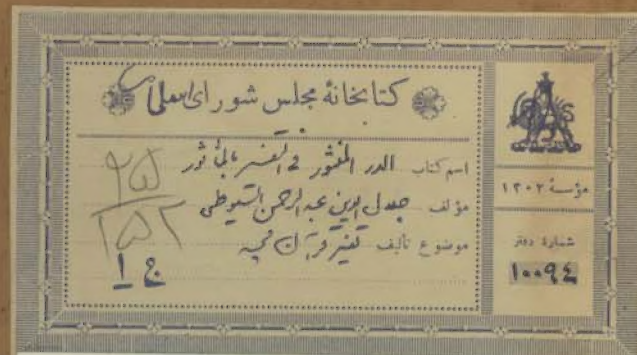 کتابخانهٔ مجلس شورای اسلامی
اسم کتاب الدر المنثور فی التفسیر بالمأثور
مؤلف جلال الدین عبدالرحمن السیوطی
موضوع تألیف تفسیر قرآن مجید
ج ۱
مؤسسهٔ ۱۳۰۲
شمارهٔ دفتر
۱۰۰۹۴